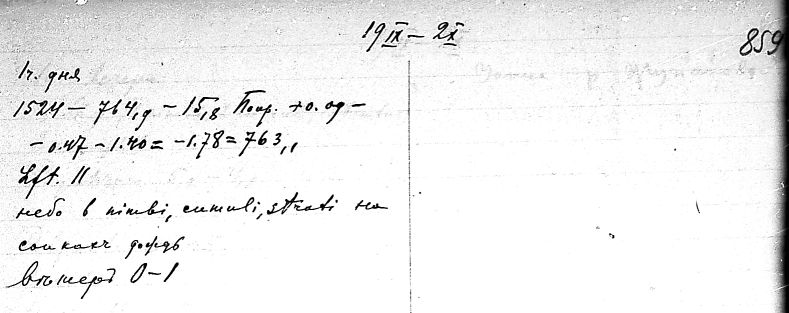 19 IX – 2 X
859
1 ч. дня
1524 – 764,9 – 15,8 Попр. +0.09 –
– 0.47 – 1.40 = – 1.78 = 763,1
Lft. 11
небо в nimbi, cumuli, strati на
сопках дождь
Вѣтеръ 0–1